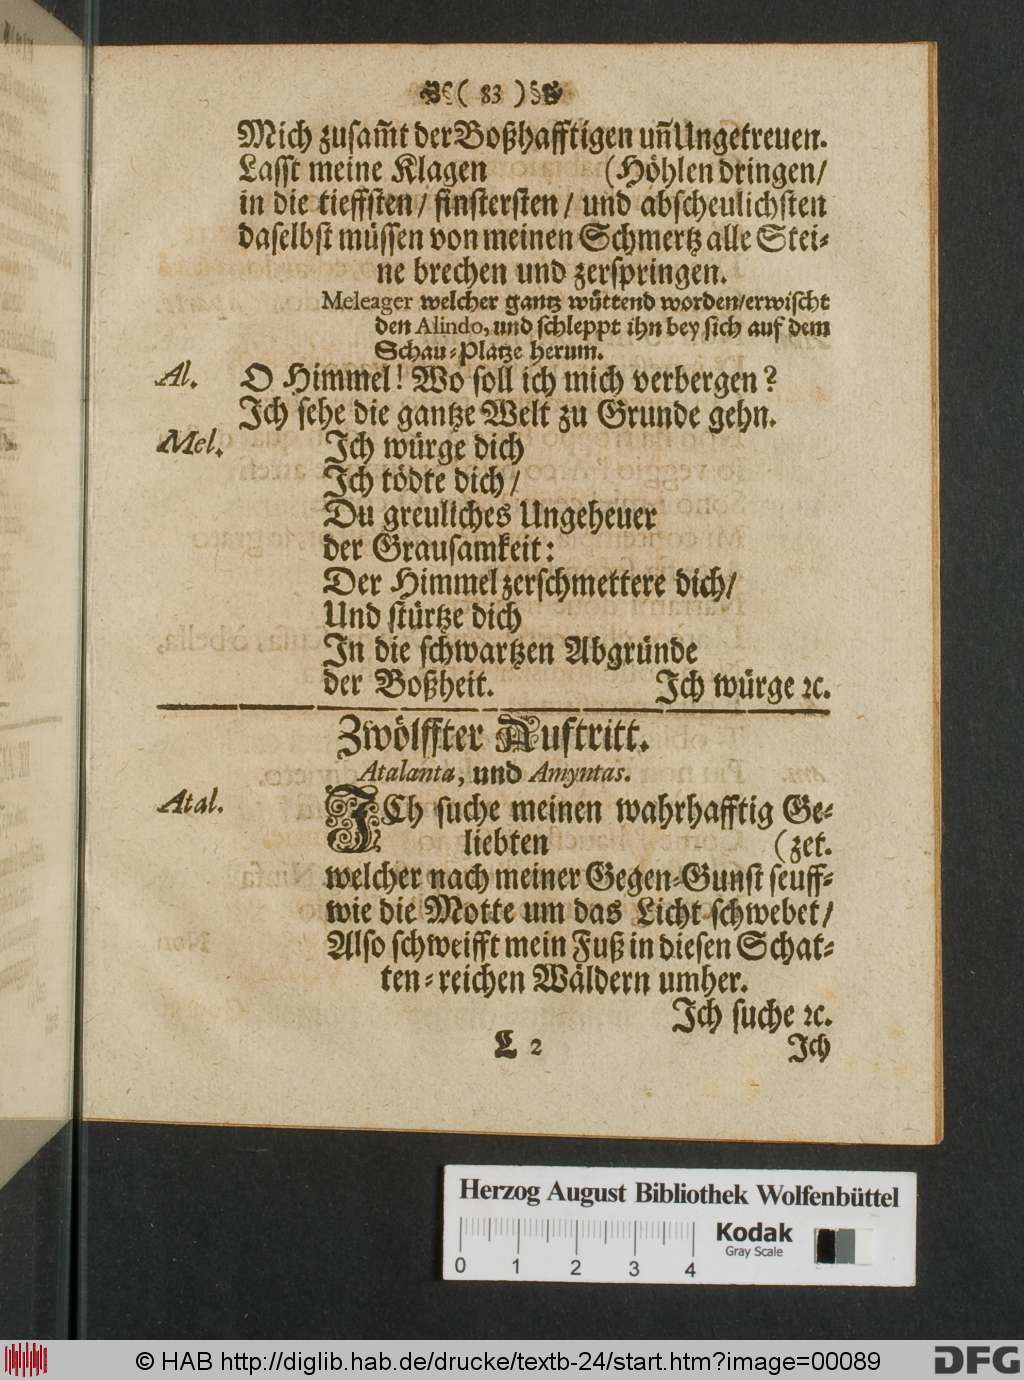 ( 83 )
Mich zusam̄t der Boßhafftigen un̄ Ungetreuen.
Lasst meine Klagen (Höhlen dringen/
in die tieffsten/ finstersten/ und abscheulichsten
daselbst müssen von meinen Schmertz alle Stei-
ne brechen und zerspringen.
Meleager welcher gantz wüttend worden/erwischt
den Alindo, und schleppt ihn bey sich auf dem
Schau-Platze herum.
Al. O Himmel! Wo soll ich mich verbergen?
Ich sehe die gantze Welt zu Grunde gehn.
Mel. Ich würge dich
Ich tödte dich/
Du greuliches Ungeheuer
der Grausamkeit:
Der Himmel zerschmettere dich/
Und stürtze dich
In die schwartzen Abgründe
der Boßheit. Ich würge ꝛc.
Zwölffter Auftritt.
Atalanta, und Amyntas.
Atal. ICh suche meinen wahrhafftig Ge-
liebten (zet.
welcher nach meiner Gegen-Gunst seuff-
wie die Motte um das Licht schwebet/
Also schweifft mein Fuß in diesen Schat-
ten-reichen Wäldern umher.
Ich suche ꝛc.
L 2 Ich
Herzog August Bibliothek Wolfenbüttel
0 1 2 3 4
Kodak
Gray Scale
© HAB http://diglib.hab.de/drucke/textb-24/start.htm?image=00089
DFG